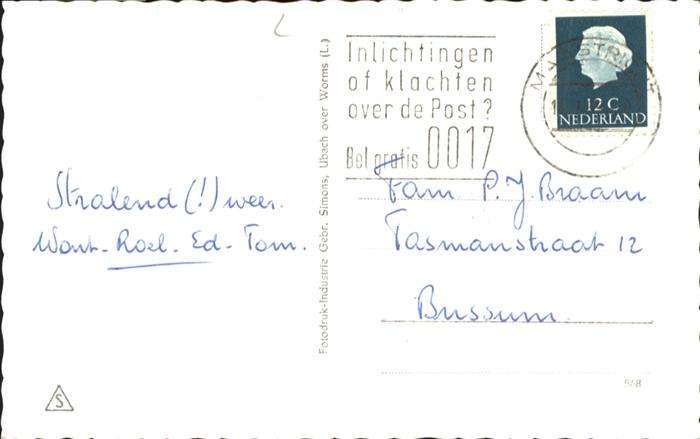 Inlichtingen
of klachten
over de Post?
Bel gratis 0017
12 C
NEDERLAND
Stralend (!) weer.
Wont - Roel - Ed - Tom.
Fotodruk-Industrie Gebr. Simons, Ubach over Worms (L.)
Fam P. J. Braam
Tasmanstraat 12
Bussum.
S